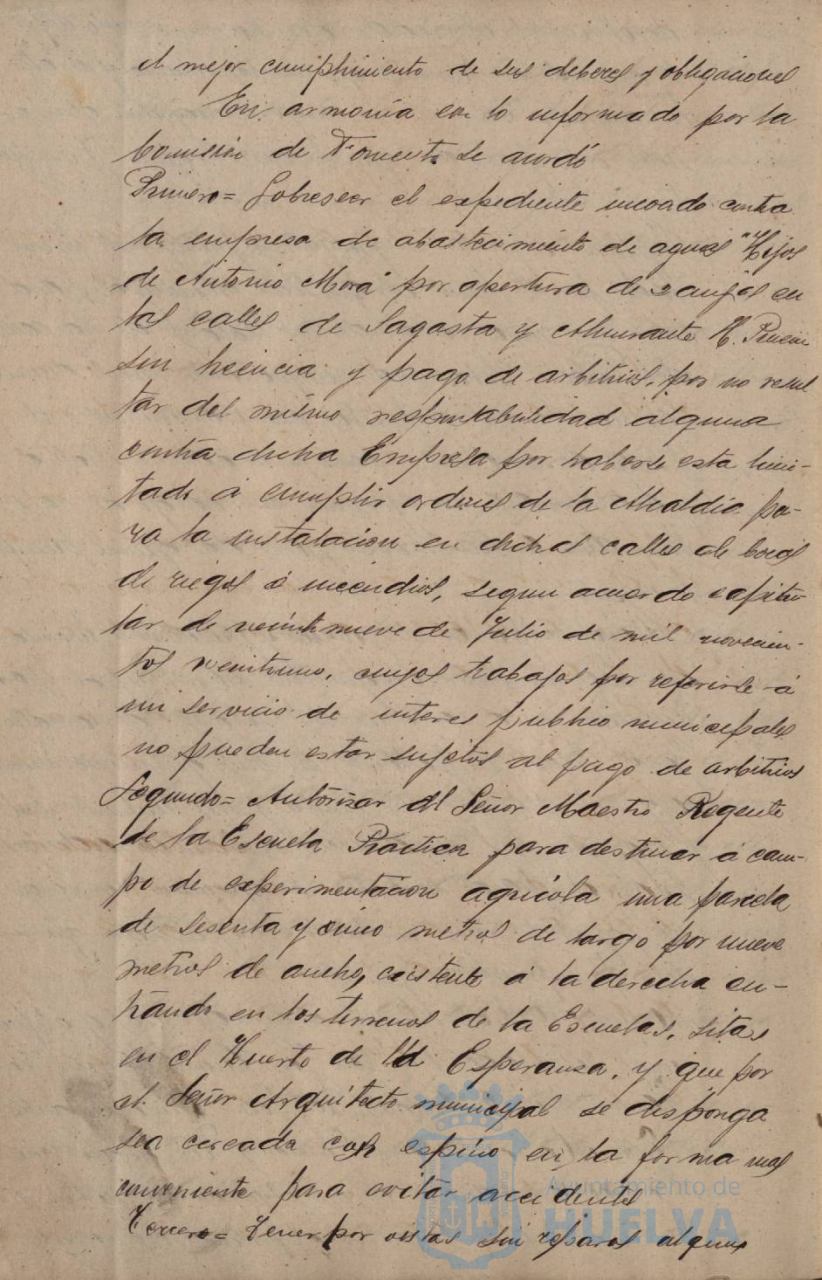 el mejor cumplimiento de sus deberes y obligaciones
En armonia con lo informado por la
Comisión de Fomento se acordó
Primero= Sobreseer el expediente incoado contra
la empresa de abastecimiento de aguas "Hijos
de Antonio Mora" por apertura de zanjas en
las calles de Sagasta y Almirante H. Pinzón
sin licencia y pago de arbitrios, por no resul
tar del mismo responsabilidad alguna
contra dicha Empresa por haberse esta limi-
tado á cumplir ordenes de la Alcaldia pa-
ra la instalacion en dichas calles de bocas
de riegos é incendios, segun acuerdo capitu-
lar de veintinueve de Julio de mil novecien-
tos veintiuno, cuyos trabajos por referirse á
un servicio de interes publico municipales
no pueden estar sujetos al pago de arbitrios
Segundo= Autorizar al Señor Maestro Regente
de la Escuela Practica para destinar á cam-
po de experimentacion agricola una parcela
de sesenta y cinco metros de largo por nueve
metros de ancho, existente á la derecha en-
trando en los terrenos de la Escuelas, sitas
en el Huerto de la Esperanza, y que por
el Señor Arquitecto municipal se disponga
sea cercada con espino en la forma mas
conveniente para evitar accidentes
Tercero= Tener por vistas sin reparos alguno
Ayuntamiento de
HUELVA